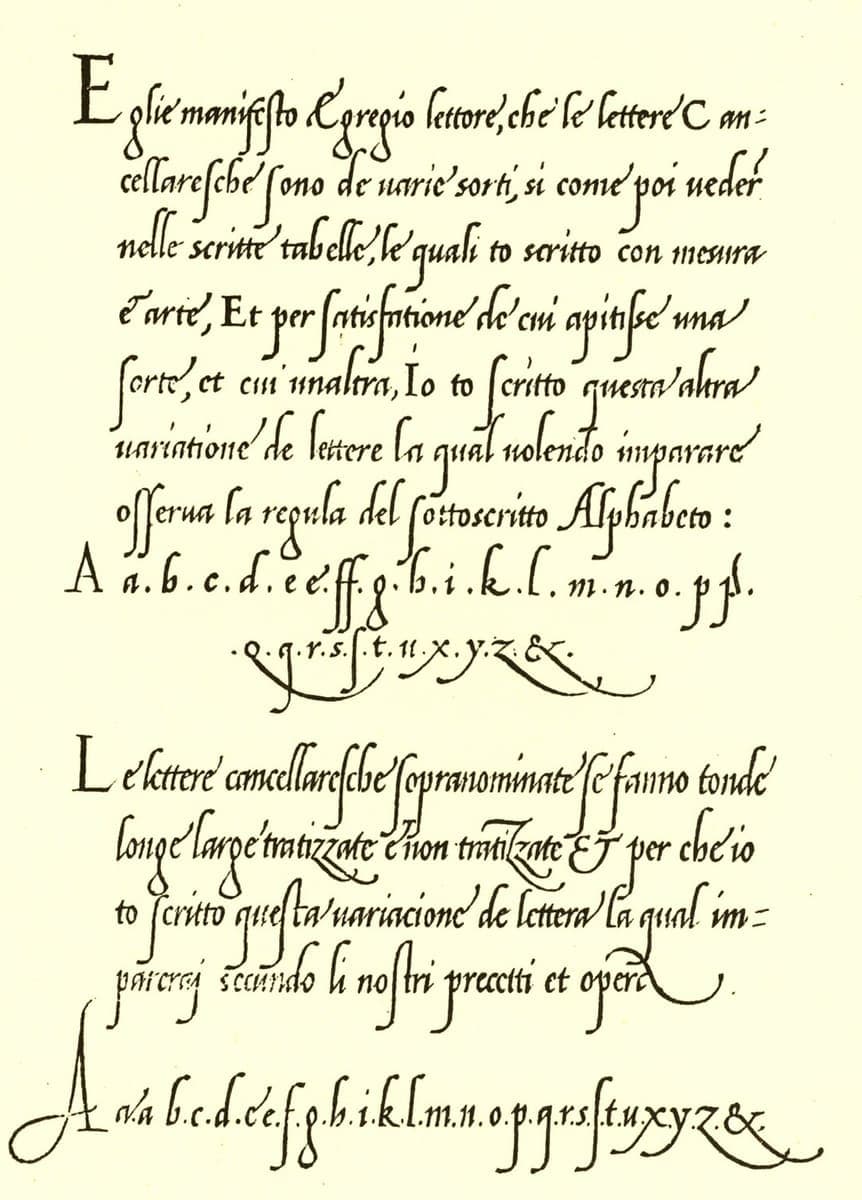 Eglie manifesto Egregio lettore, che le lettere Can=
cellaresche sono de uarie sorti, si come poi ueder
nelle scritte tabelle, le quali to scritto con mesura
é arte, Et per satisfatione de cui apitisse una
sorte, et cui unaltra, Io to scritto questa altra
uariatione de lettere la qual uolendo imparare
osserua la regula del sottoscritto Alphabeto :
A a. b. c. d. e e. ff. g. h. i. k. l. m. n. o. p p.
.q. q. r. s. ſ. t. u. x. y. z. &.
Le lettere cancellaresche sopranominate se fanno tonde
longe large tratizzate e non tratizate ET per che io
to scritto questa uariacione de lettera la qual im=
parerai secundo li nostri precetti et opera .
A a.a b.c.d.e e.f.g.h.i.k.l.m.n.o.p.q.r.s.ſ.t.u.x.y.z.&.